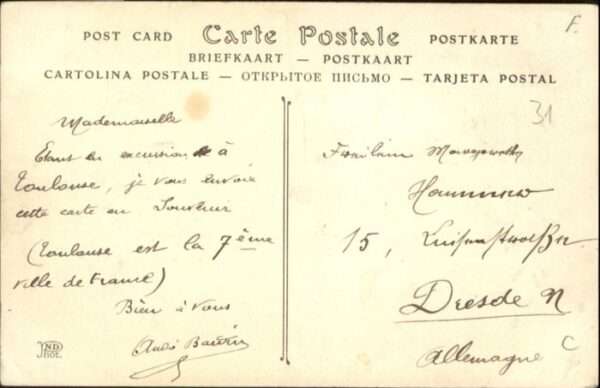 F.
POST CARD Carte Postale POSTKARTE
BRIEFKAART — POSTKAART
CARTOLINA POSTALE — ОТКРЫТОЕ ПИСЬМО — TARJETA POSTAL
31
Mademoiselle
Etant en excursion à
Toulouse, je vous envoie
cette carte en Souvenir
(Toulouse est la 7ème
ville de France)
Bien à vous
André
ND
Fraülein
15, Luisenstraße
Dresde N
Allemagne
C